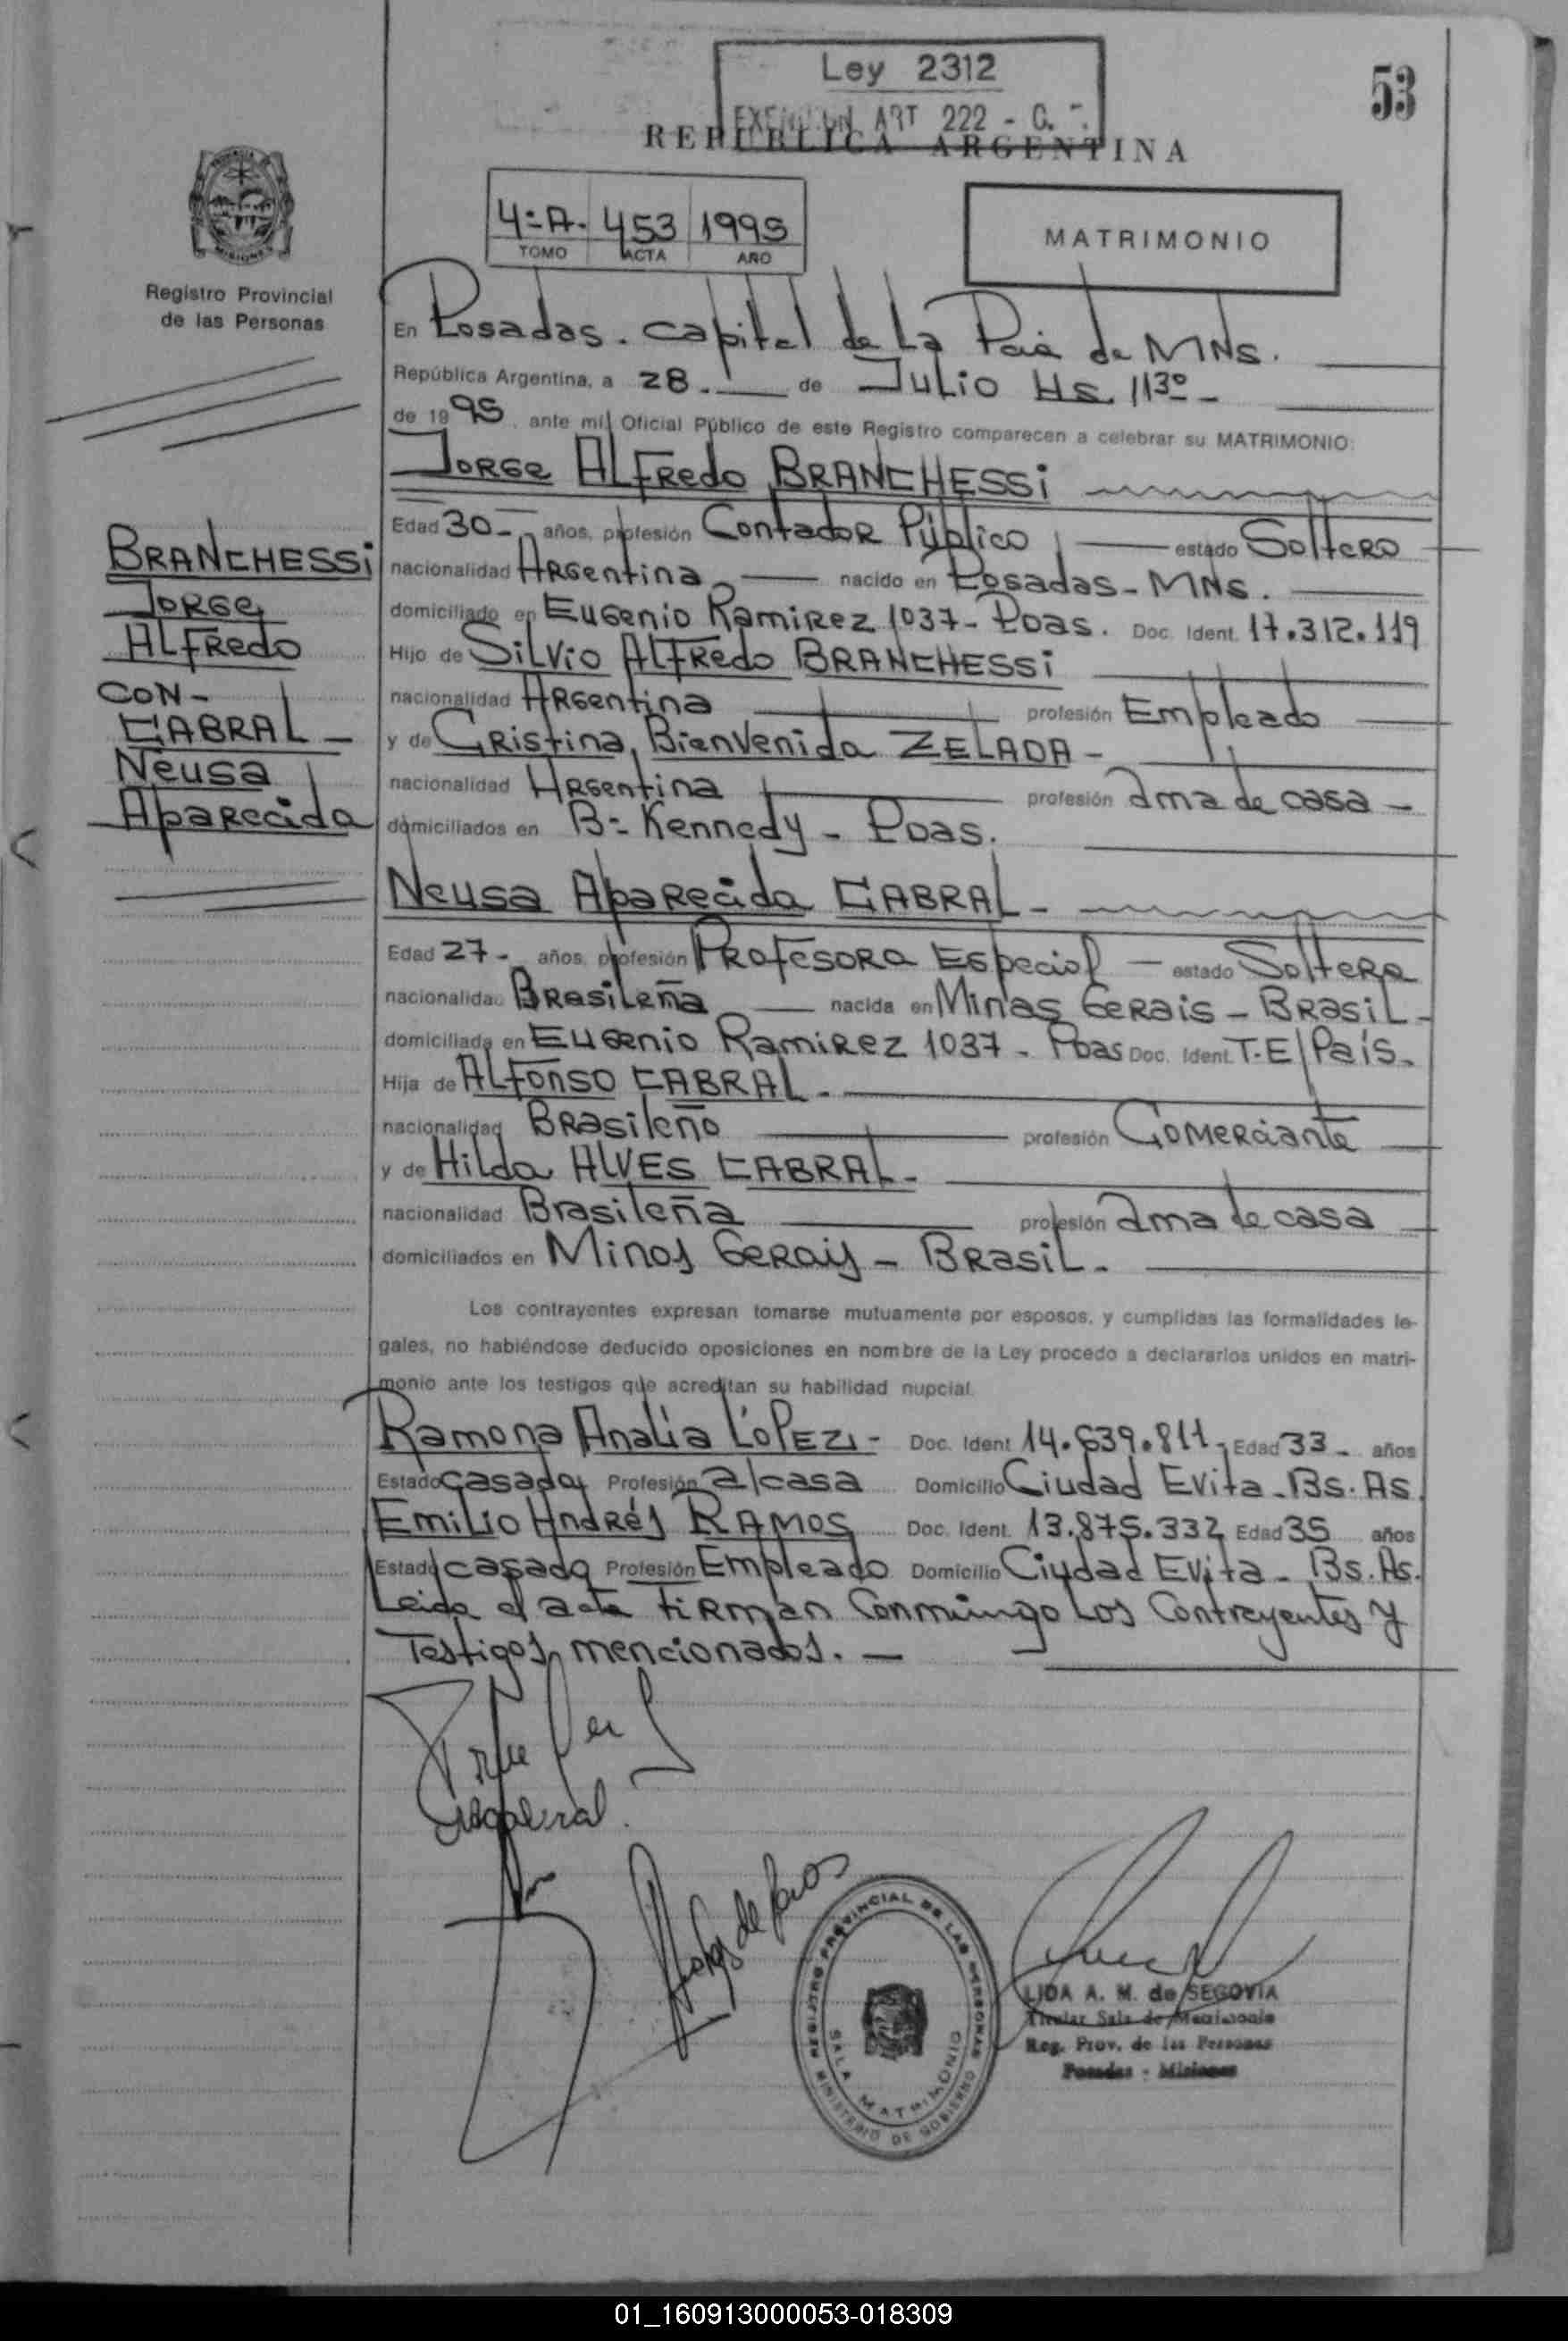 Ley 2312
EXENCION ART 222 - C.
53
REPUBLICA ARGENTINA
4º A. 453 1995
TOMO ACTA AÑO
MATRIMONIO
Registro Provincial
de las Personas
En Posadas. Capital de La Pcia de MNs.
República Argentina, a 28. de Julio Hs. 11³⁰ -
de 1995, ante mí, Oficial Público de este Registro comparecen a celebrar su MATRIMONIO:
Jorge Alfredo BRANCHESSi
Edad 30 - años, profesión Contador Público estado Soltero
nacionalidad Argentina nacido en Posadas - MNs.
domiciliado en Eugenio Ramirez 1037 - Poas. Doc. Ident. 17.312.119
Hijo de Silvio Alfredo BRANCHESSi
nacionalidad Argentina profesión Empleado
y de Cristina Bienvenida ZELADA -
nacionalidad Argentina profesión ama de casa -
domiciliados en Bº Kennedy - Poas.
BRANCHESSi
Jorge
Alfredo
CON -
CABRAL -
Neusa
Aparecida
Neusa Aparecida CABRAL -
Edad 27 - años, profesión Profesora Especial - estado Soltera
nacionalidad Brasileña nacida en Minas Gerais - Brasil -
domiciliada en Eugenio Ramirez 1037 - Poas Doc. Ident. T.E/País.
Hija de Alfonso CABRAL -
nacionalidad Brasileño profesión Comerciante
y de Hilda ALVES CABRAL -
nacionalidad Brasileña profesión ama de casa
domiciliados en Minas Gerais - Brasil -
Los contrayentes expresan tomarse mutuamente por esposos, y cumplidas las formalidades le-
gales, no habiéndose deducido oposiciones en nombre de la Ley procedo a declararlos unidos en matri-
monio ante los testigos que acreditan su habilidad nupcial.
Ramona Analía LÓPEZ - Doc. Ident 14.639.811 - Edad 33 - años
Estado casada Profesión a/casa Domicilio Ciudad Evita - Bs. As.
Emilio Andrés RAMOS Doc. Ident. 13.875.332 Edad 35 años
Estado casado Profesión Empleado Domicilio Ciudad Evita - Bs. As.
Leida el acta firman conmingo los contrayentes y
Testigos mencionados. -
REGISTRO PROVINCIAL DE LAS PERSONAS
SALA MATRIMONIO
MINISTERIO DE GOBIERNO
LIDA A. M. de SEGOVIA
Titular Sala de Matrimonio
Reg. Prov. de las Personas
Posadas - Misiones
01_160913000053-018309